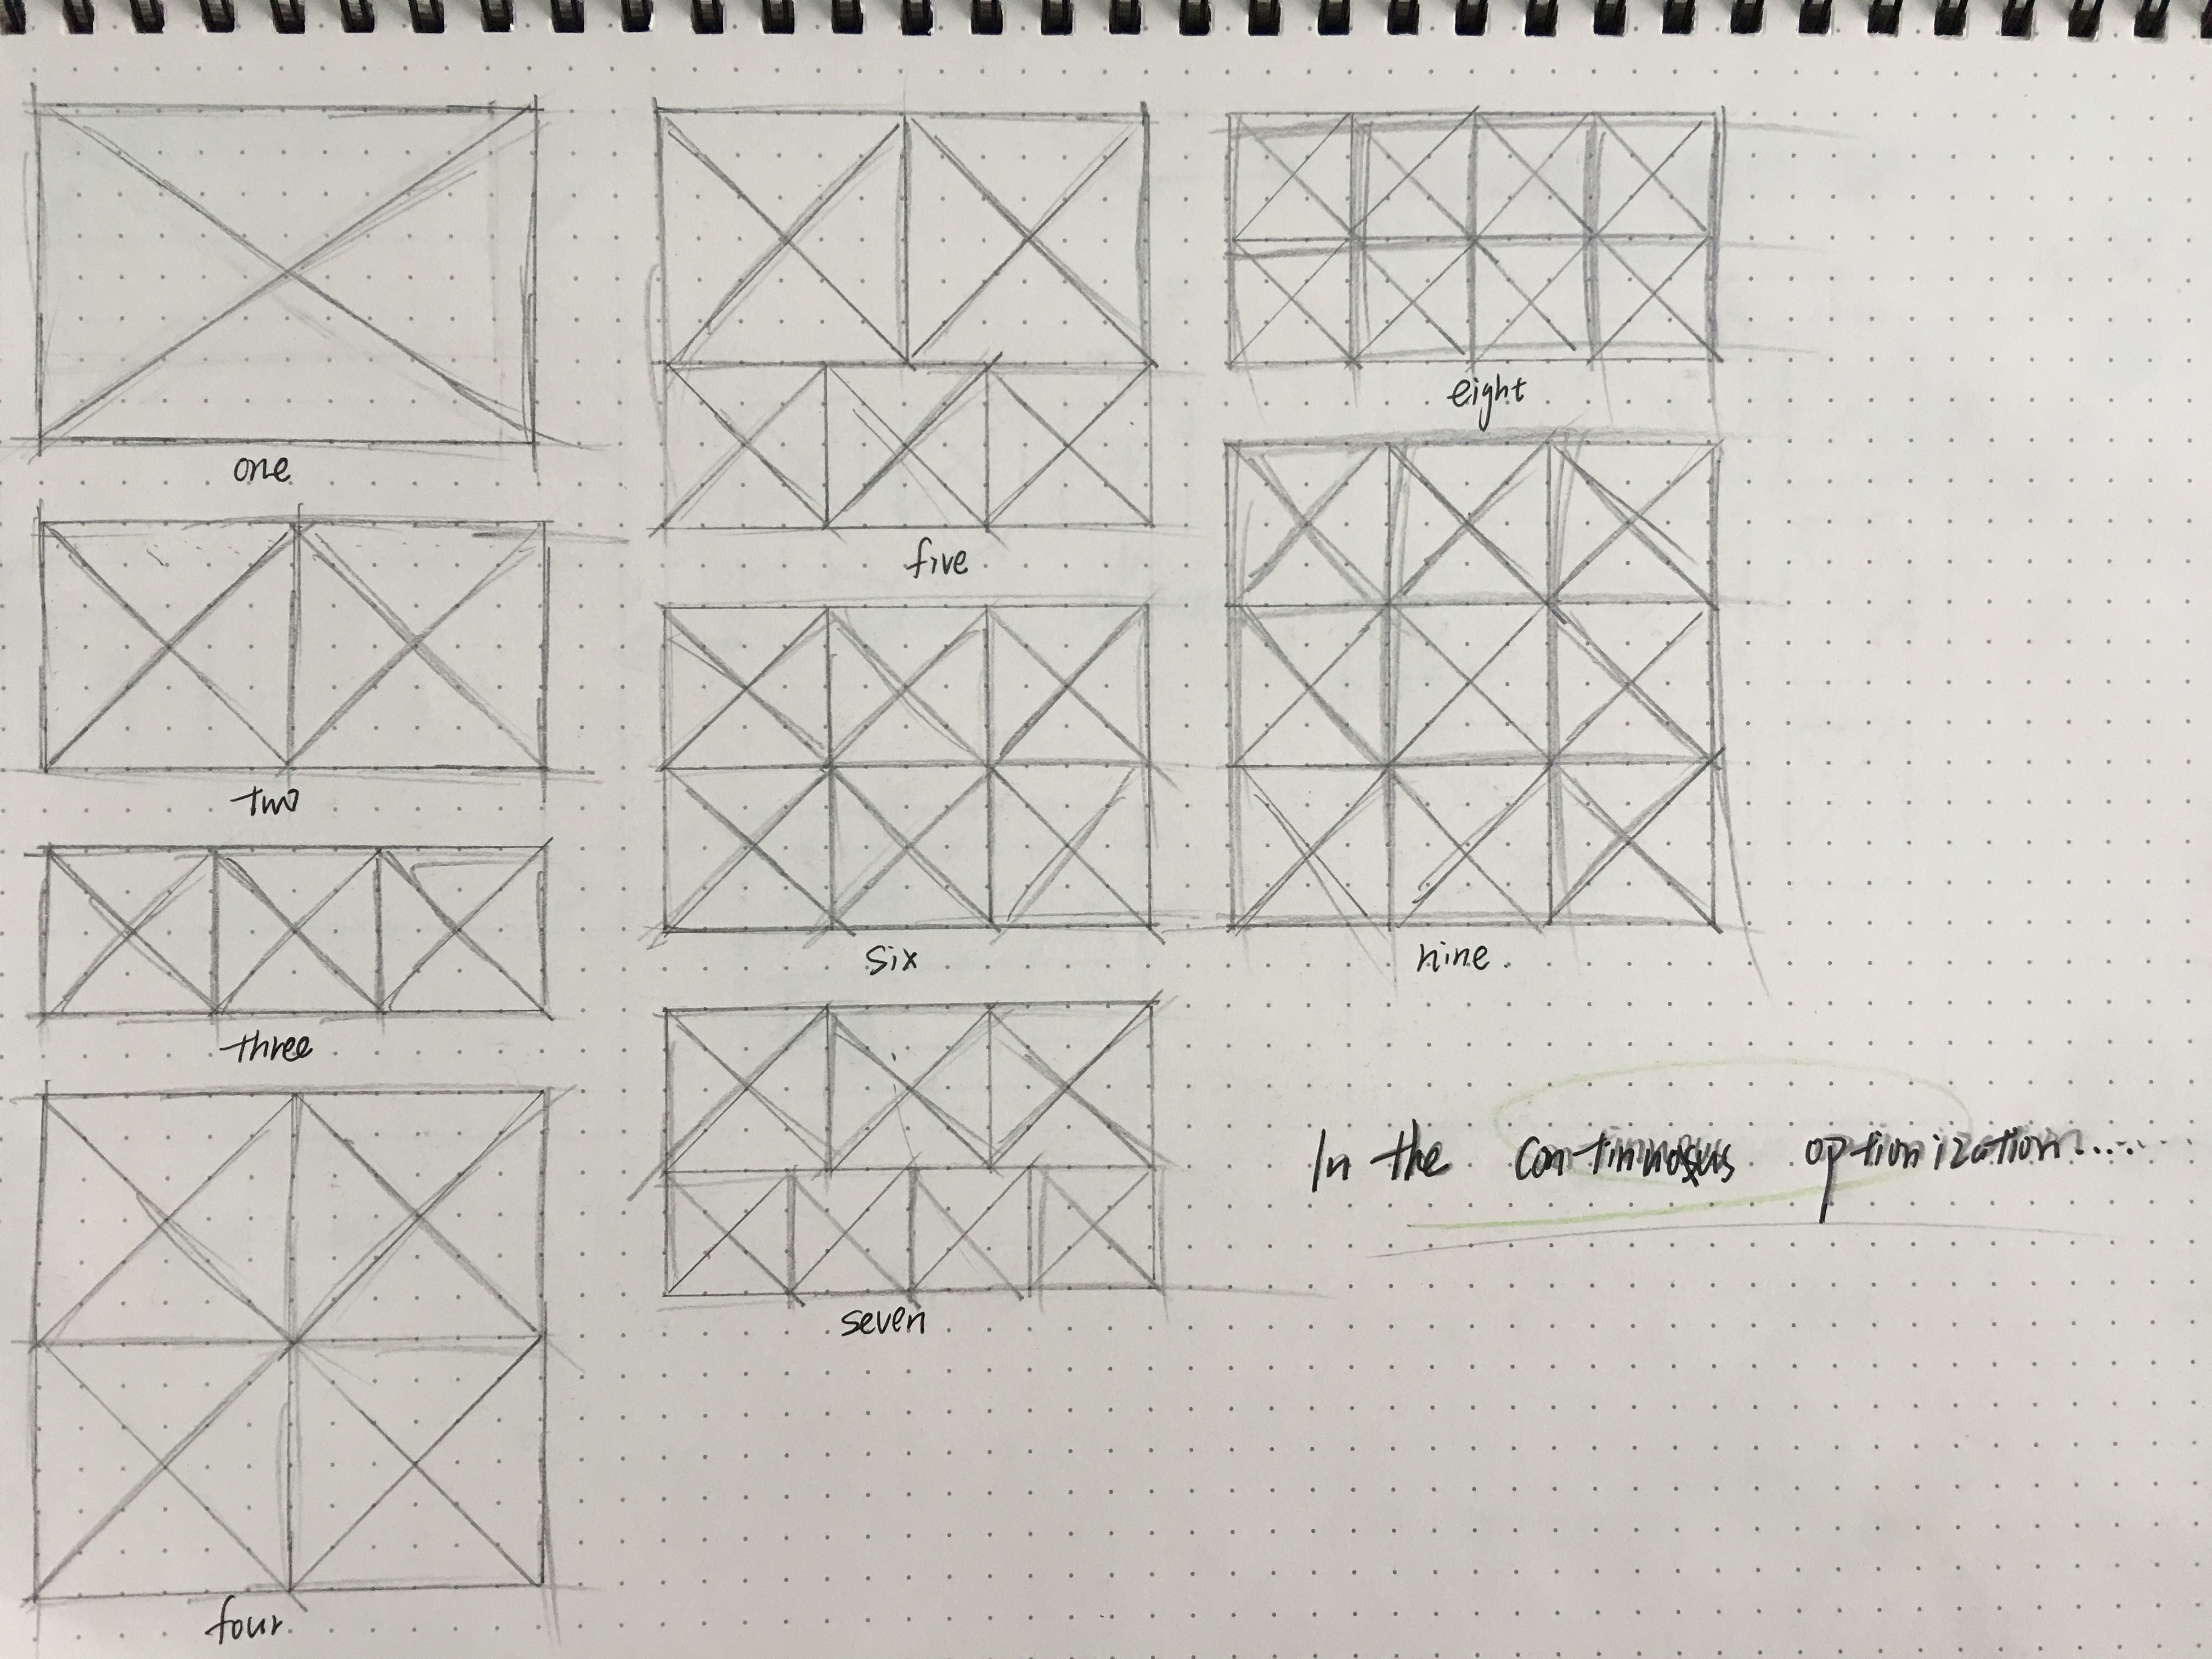 one
two
three
four
five
six
seven
eight
nine.
In the continuosus optionization.....